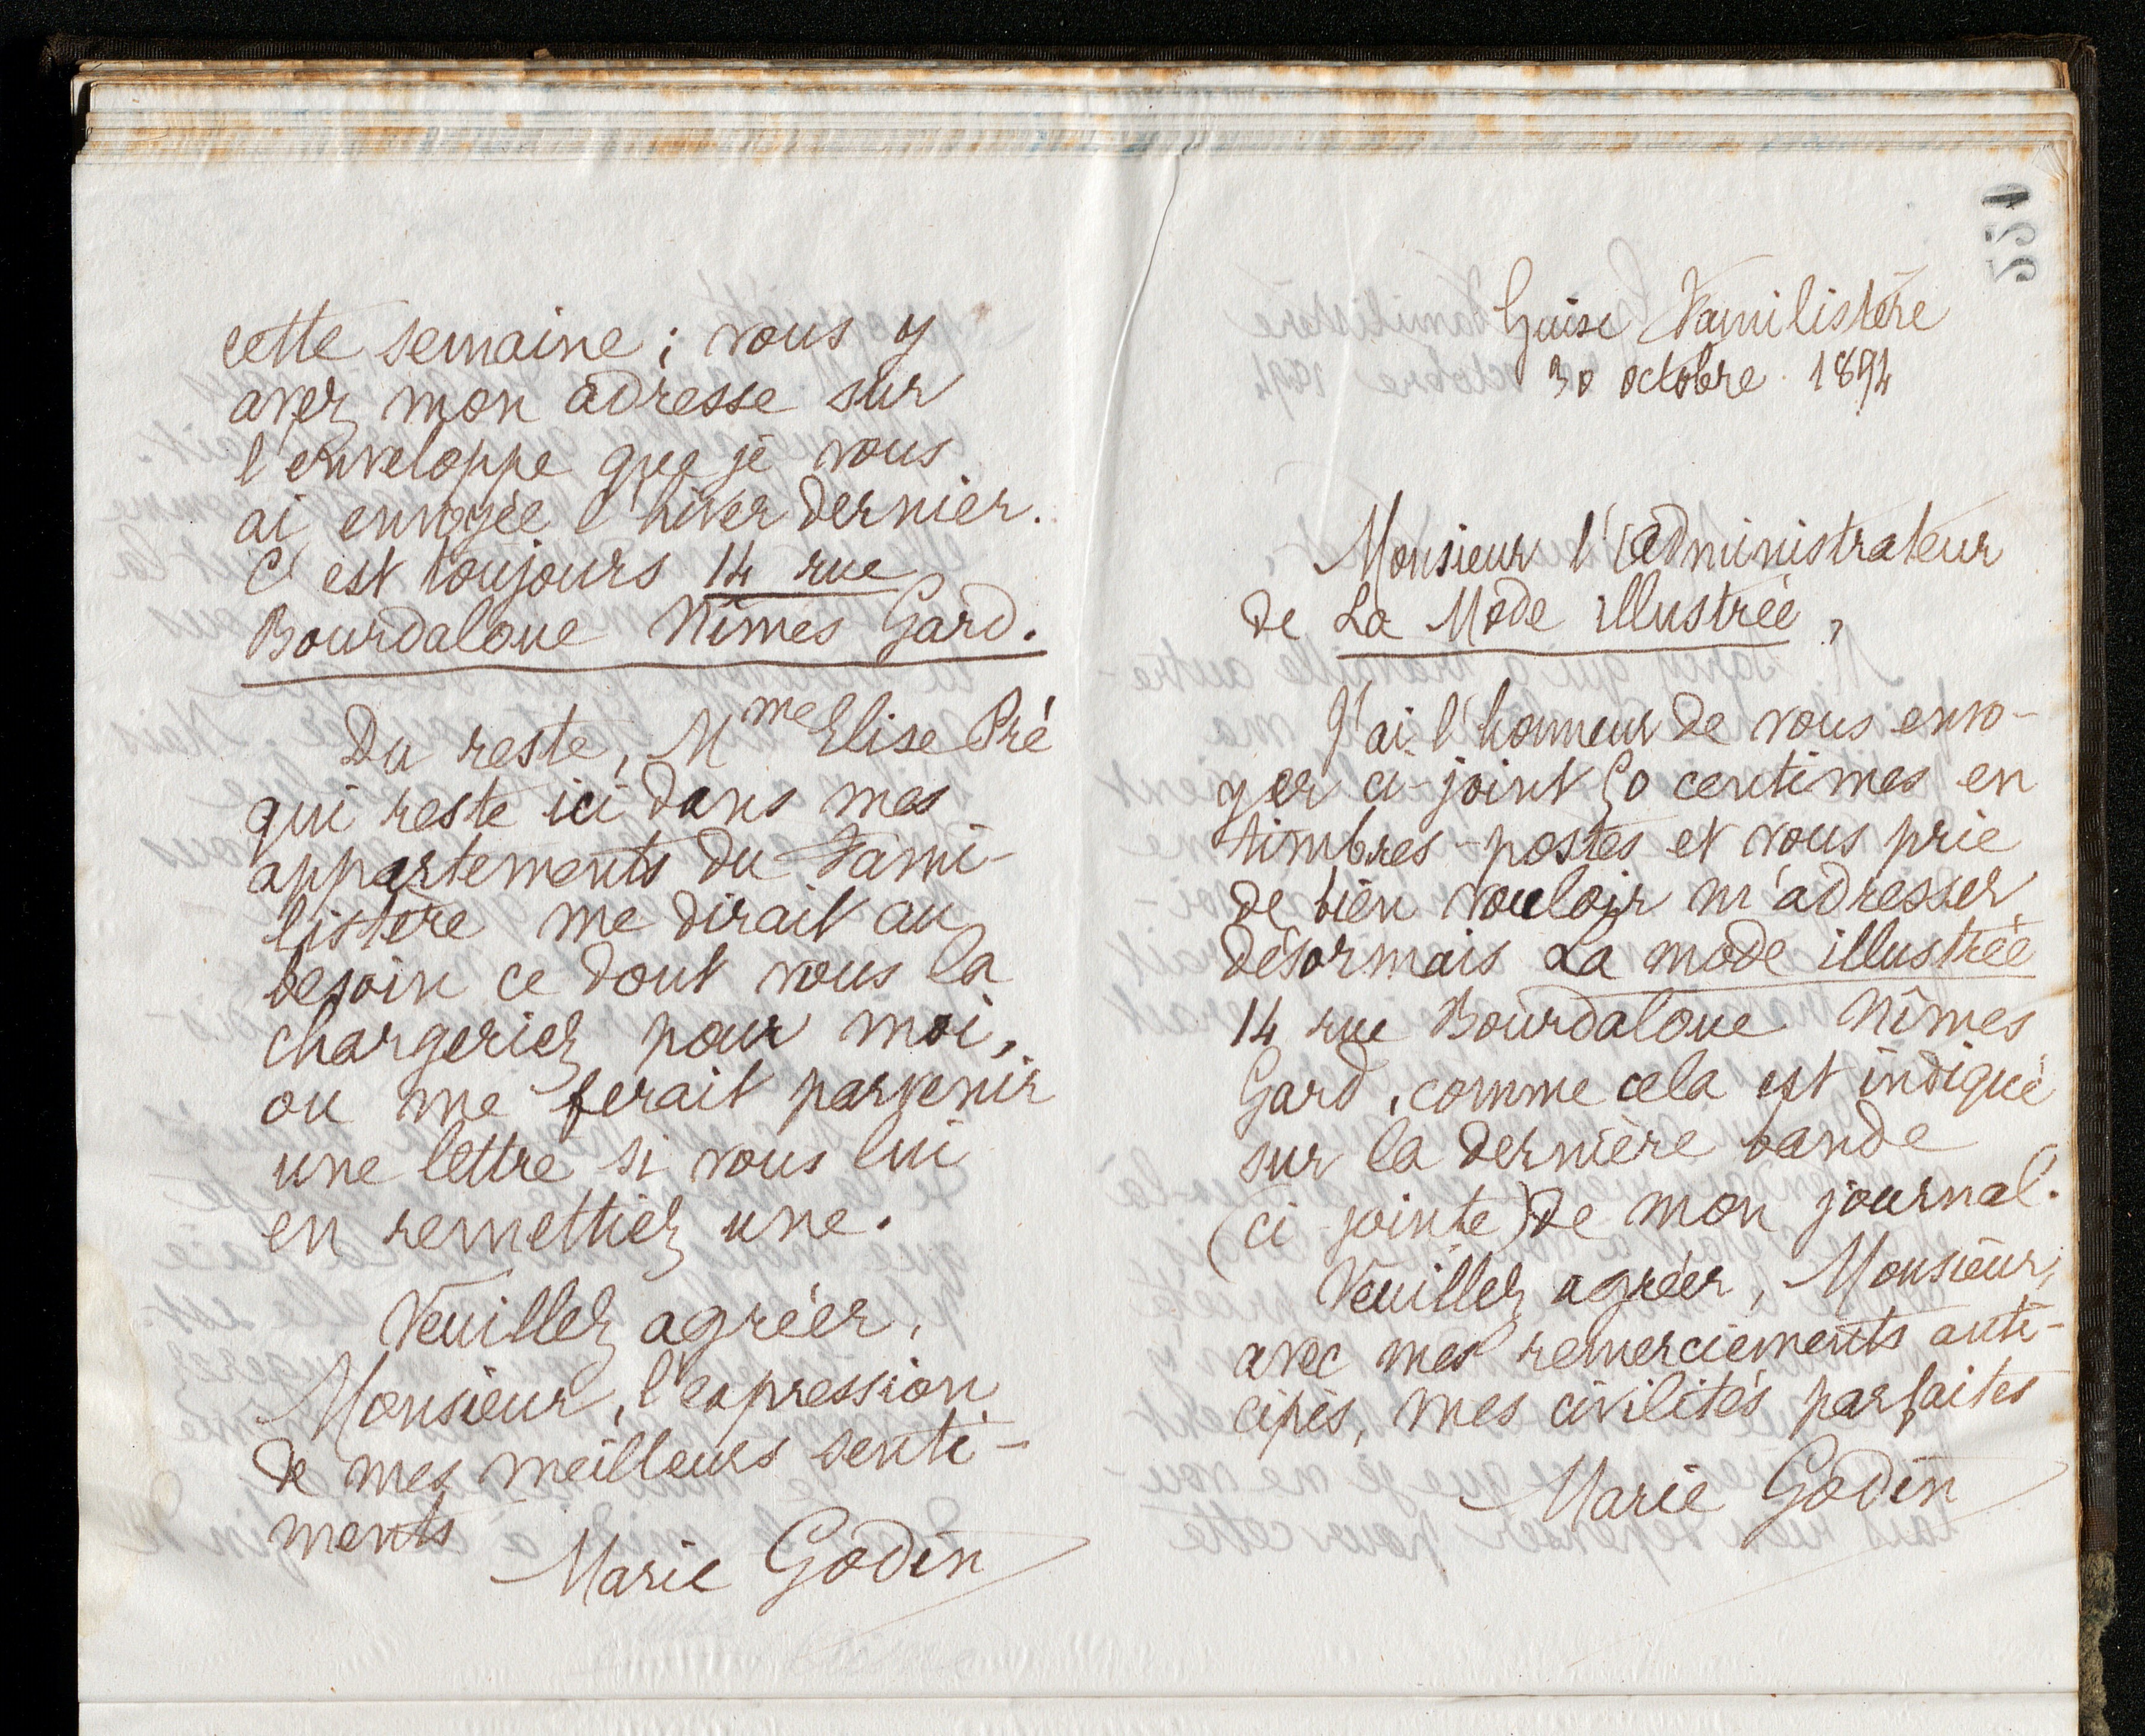 cette semaine ; vous y
avez mon adresse sur
l'enveloppe que je vous
ai envoyée l'hiver dernier.
C'est toujours 14 rue
Bourdaloue Nîmes Gard.
Du reste, Mme Elise Pré
qui reste ici dans mes
appartements du Fami-
listère me dirait au
besoin ce dont vous la
chargeriez pour moi,
ou me ferait parvenir
une lettre si vous lui
en remettiez une.
Veuillez agréer,
Monsieur, l'expression
de mes meilleurs senti-
ments
Marie Godin
551
Guise Familistère
30 octobre 1894
Monsieur l'administrateur
de La Mode illustrée,
J'ai l'honneur de vous envo-
yer ci-joint 50 centimes en
timbres-postes et vous prie
de bien vouloir m'adresser
désormais La mode illustrée
14 rue Bourdaloue Nîmes
Gard, comme cela est indiqué
sur la dernière bande
(ci-jointe) de mon journal.
Veuillez agréer, Monsieur,
avec mes remerciements anti-
cipés, mes civilités parfaites
Marie Godin